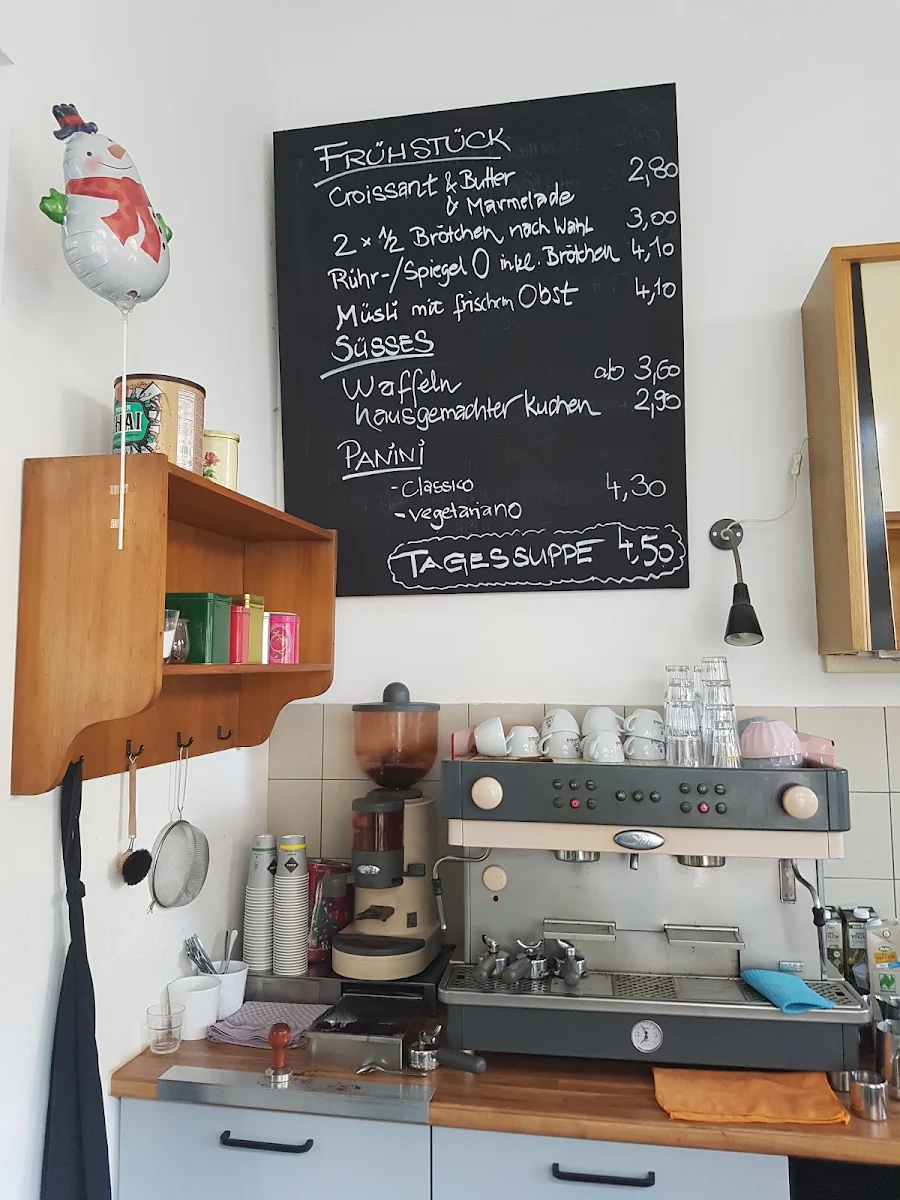 FRÜHSTÜCK
Croissant & Butter 2,80
& Marmelade
2 x 1/2 Brötchen nach Wahl 3,00
Rühr-/Spiegel O inkl. Brötchen 4,10
Müsli mit frischem Obst 4,10
SÜSSES
Waffeln ab 3,60
hausgemachter Kuchen 2,90
PANINI
- Classico 4,30
- vegetariano
TAGESSUPPE 4,50